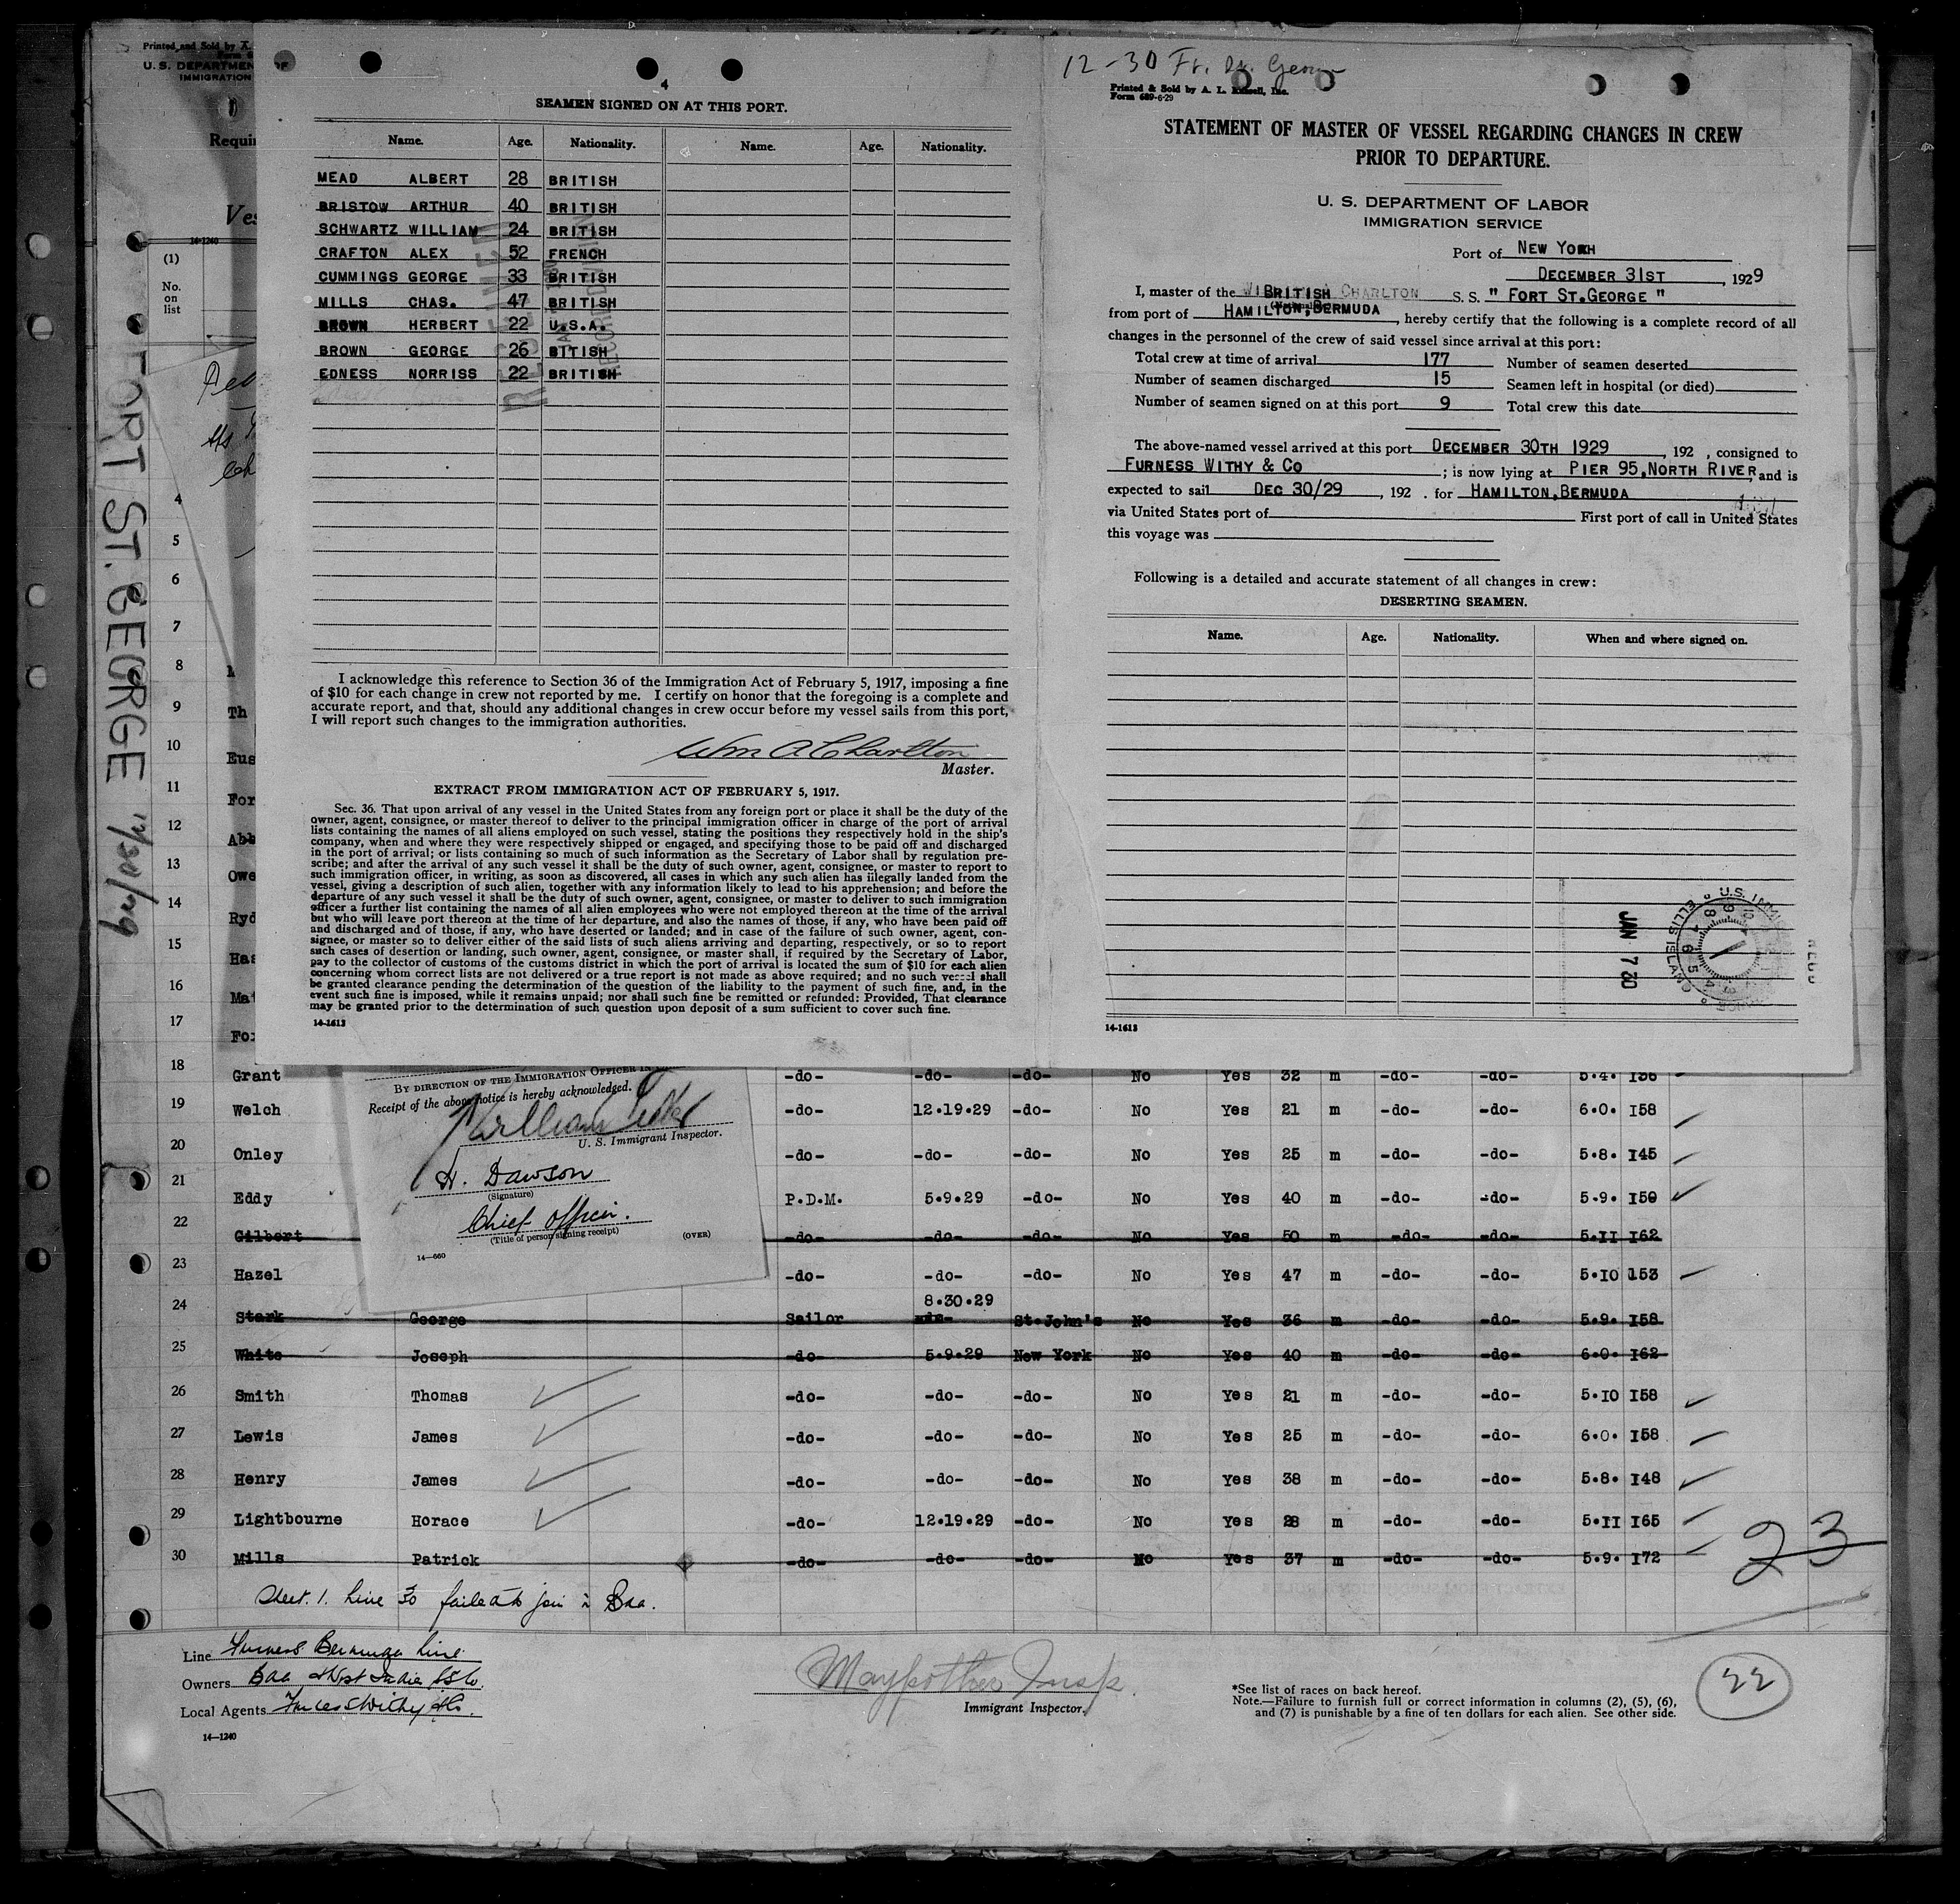 Printed and Sold by A.
U. S. DEPARTMENT OF
IMMIGRATION
14-1240
(1)
No.
on
list
FORT ST. GEORGE 12/30/29
4
SEAMEN SIGNED ON AT THIS PORT.
Name. Age. Nationality. Name. Age. Nationality.
MEAD ALBERT 28 BRITISH
BRISTOW ARTHUR 40 BRITISH
SCHWARTZ WILLIAM 24 BRITISH
CRAFTON ALEX 52 FRENCH
CUMMINGS GEORGE 33 BRITISH
MILLS CHAS. 47 BRITISH
BROWN HERBERT 22 U.S.A.
BROWN GEORGE 26 BTITISH
EDNESS NORRISS 22 BRITISH
I acknowledge this reference to Section 36 of the Immigration Act of February 5, 1917, imposing a fine
of $10 for each change in crew not reported by me. I certify on honor that the foregoing is a complete and
accurate report, and that, should any additional changes in crew occur before my vessel sails from this port,
I will report such changes to the immigration authorities.
Wm A Charlton
Master.
EXTRACT FROM IMMIGRATION ACT OF FEBRUARY 5, 1917.
Sec. 36. That upon arrival of any vessel in the United States from any foreign port or place it shall be the duty of the
owner, agent, consignee, or master thereof to deliver to the principal immigration officer in charge of the port of arrival
lists containing the names of all aliens employed on such vessel, stating the positions they respectively hold in the ship's
company, when and where they were respectively shipped or engaged, and specifying those to be paid off and discharged
in the port of arrival; or lists containing so much of such information as the Secretary of Labor shall by regulation pre-
scribe; and after the arrival of any such vessel it shall be the duty of such owner, agent, consignee, or master to report to
such immigration officer, in writing, as soon as discovered, all cases in which any such alien has illegally landed from the
vessel, giving a description of such alien, together with any information likely to lead to his apprehension; and before the
departure of any such vessel it shall be the duty of such owner, agent, consignee, or master to deliver to such immigration
officer a further list containing the names of all alien employees who were not employed thereon at the time of the arrival
but who will leave port thereon at the time of her departure, and also the names of those, if any, who have been paid off
and discharged and of those, if any, who have deserted or landed; and in case of the failure of such owner, agent, con-
signee, or master so to deliver either of the said lists of such aliens arriving and departing, respectively, or so to report
such cases of desertion or landing, such owner, agent, consignee, or master shall, if required by the Secretary of Labor,
pay to the collector of customs of the customs district in which the port of arrival is located the sum of $10 for each alien
concerning whom correct lists are not delivered or a true report is not made as above required; and no such vessel shall
be granted clearance pending the determination of the question of the liability to the payment of such fine, and, in the
event such fine is imposed, while it remains unpaid; nor shall such fine be remitted or refunded: Provided, That clearance
may be granted prior to the determination of such question upon deposit of a sum sufficient to cover such fine.
14-1613
12-30 Ft. St. George
Printed & Sold by A. L. Russell, Inc.
Form 689-6-29
STATEMENT OF MASTER OF VESSEL REGARDING CHANGES IN CREW
PRIOR TO DEPARTURE.
U. S. DEPARTMENT OF LABOR
IMMIGRATION SERVICE
Port of NEW YORK
DECEMBER 31ST, 1929
I, master of the BRITISH CHARLTON S. S. " FORT ST.GEORGE "
from port of HAMILTON,BERMUDA, hereby certify that the following is a complete record of all
changes in the personnel of the crew of said vessel since arrival at this port:
Total crew at time of arrival 177 Number of seamen deserted
Number of seamen discharged 15 Seamen left in hospital (or died)
Number of seamen signed on at this port 9 Total crew this date
The above-named vessel arrived at this port DECEMBER 30TH 1929, 192 , consigned to
FURNESS WITHY & CO ; is now lying at PIER 95,NORTH RIVER, and is
expected to sail DEC 30/29, 192 . for HAMILTON,BERMUDA
via United States port of First port of call in United States
this voyage was
Following is a detailed and accurate statement of all changes in crew:
DESERTING SEAMEN.
Name. Age. Nationality. When and where signed on.
JAN 7 30
U.S. IMMIG
ELLIS ISLAND
14-1613
4
5
6
7
8
9 Th
10 Eus
11 For
12 Abb
13 Owe
14 Ryd
15 Has
16 Mat
17 For
BY DIRECTION OF THE IMMIGRATION OFFICER IN
Receipt of the above notice is hereby acknowledged.
U. S. Immigrant Inspector.
H. Dawson
(Signature)
Chief Officer.
(Title of person signing receipt)
(OVER)
14—660
18 Grant -do- -do- -do- No Yes 32 m -do- -do- 5.4. 136
19 Welch -do- 12.19.29 -do- No Yes 21 m -do- -do- 6.0. 158
20 Onley -do- -do- -do- No Yes 25 m -do- -do- 5.8. 145
21 Eddy P.D.M. 5.9.29 -do- No Yes 40 m -do- -do- 5.9. 150
22 Gilbert -do- -do- -do- No Yes 50 m -do- -do- 5.11 162
23 Hazel -do- -do- -do- No Yes 47 m -do- -do- 5.10 153
8.30.29
24 Stark George Sailor -do- St.John's No Yes 36 m -do- -do- 5.9. 158
25 White Joseph -do- 5.9.29 New York No Yes 40 m -do- -do- 6.0. 162
26 Smith Thomas -do- -do- -do- No Yes 21 m -do- -do- 5.10 158
27 Lewis James -do- -do- -do- No Yes 25 m -do- -do- 6.0. 158
28 Henry James -do- -do- -do- No Yes 38 m -do- -do- 5.8. 148
29 Lightbourne Horace -do- 12.19.29 -do- No Yes 28 m -do- -do- 5.11 165
30 Mills Patrick -do- -do- -do- No Yes 37 m -do- -do- 5.9. 172
23
Sheet. 1. Line 30 failed to join in Bda.
Line Furness Bermuda Line
Owners Bda & West Indies SS Co.
Local Agents Furness Withy & Co.
14—1240
Immigrant Inspector.
*See list of races on back hereof.
Note.—Failure to furnish full or correct information in columns (2), (5), (6),
and (7) is punishable by a fine of ten dollars for each alien. See other side.
22
9